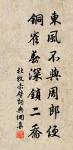 東風不與周郎便
銅雀春深鎖二喬
杜牧赤壁詩詞典網集